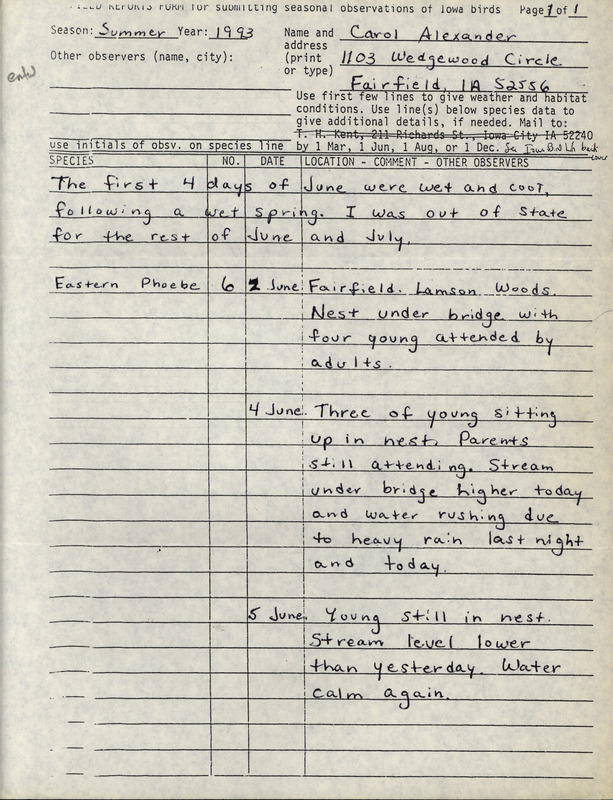 FIELD REPORTS FORM for submitting seasonal observations of Iowa birds Page 1 of 1
Season: Summer Year: 1993 Name and Carol Alexander
address
Other observers (name, city): (print 1103 Wedgewood Circle
or type)
entd
Fairfield, IA 52556
Use first few lines to give weather and habitat
conditions. Use line(s) below species data to
give additional details, if needed. Mail to:
T. H. Kent, 211 Richards St., Iowa City IA 52240
use initials of obsv. on species line by 1 Mar, 1 Jun, 1 Aug, or 1 Dec. See Iowa Bird Life back
cover
SPECIES NO. DATE LOCATION - COMMENT - OTHER OBSERVERS
The first 4 days of June were wet and cool,
following a wet spring. I was out of state
for the rest of June and July.
Eastern Phoebe 6 2 June Fairfield. Lamson Woods.
Nest under bridge with
four young attended by
adults.
4 June. Three of young sitting
up in nest. Parents
still attending. Stream
under bridge higher today
and water rushing due
to heavy rain last night
and today.
5 June. Young still in nest.
Stream level lower
than yesterday. Water
calm again.